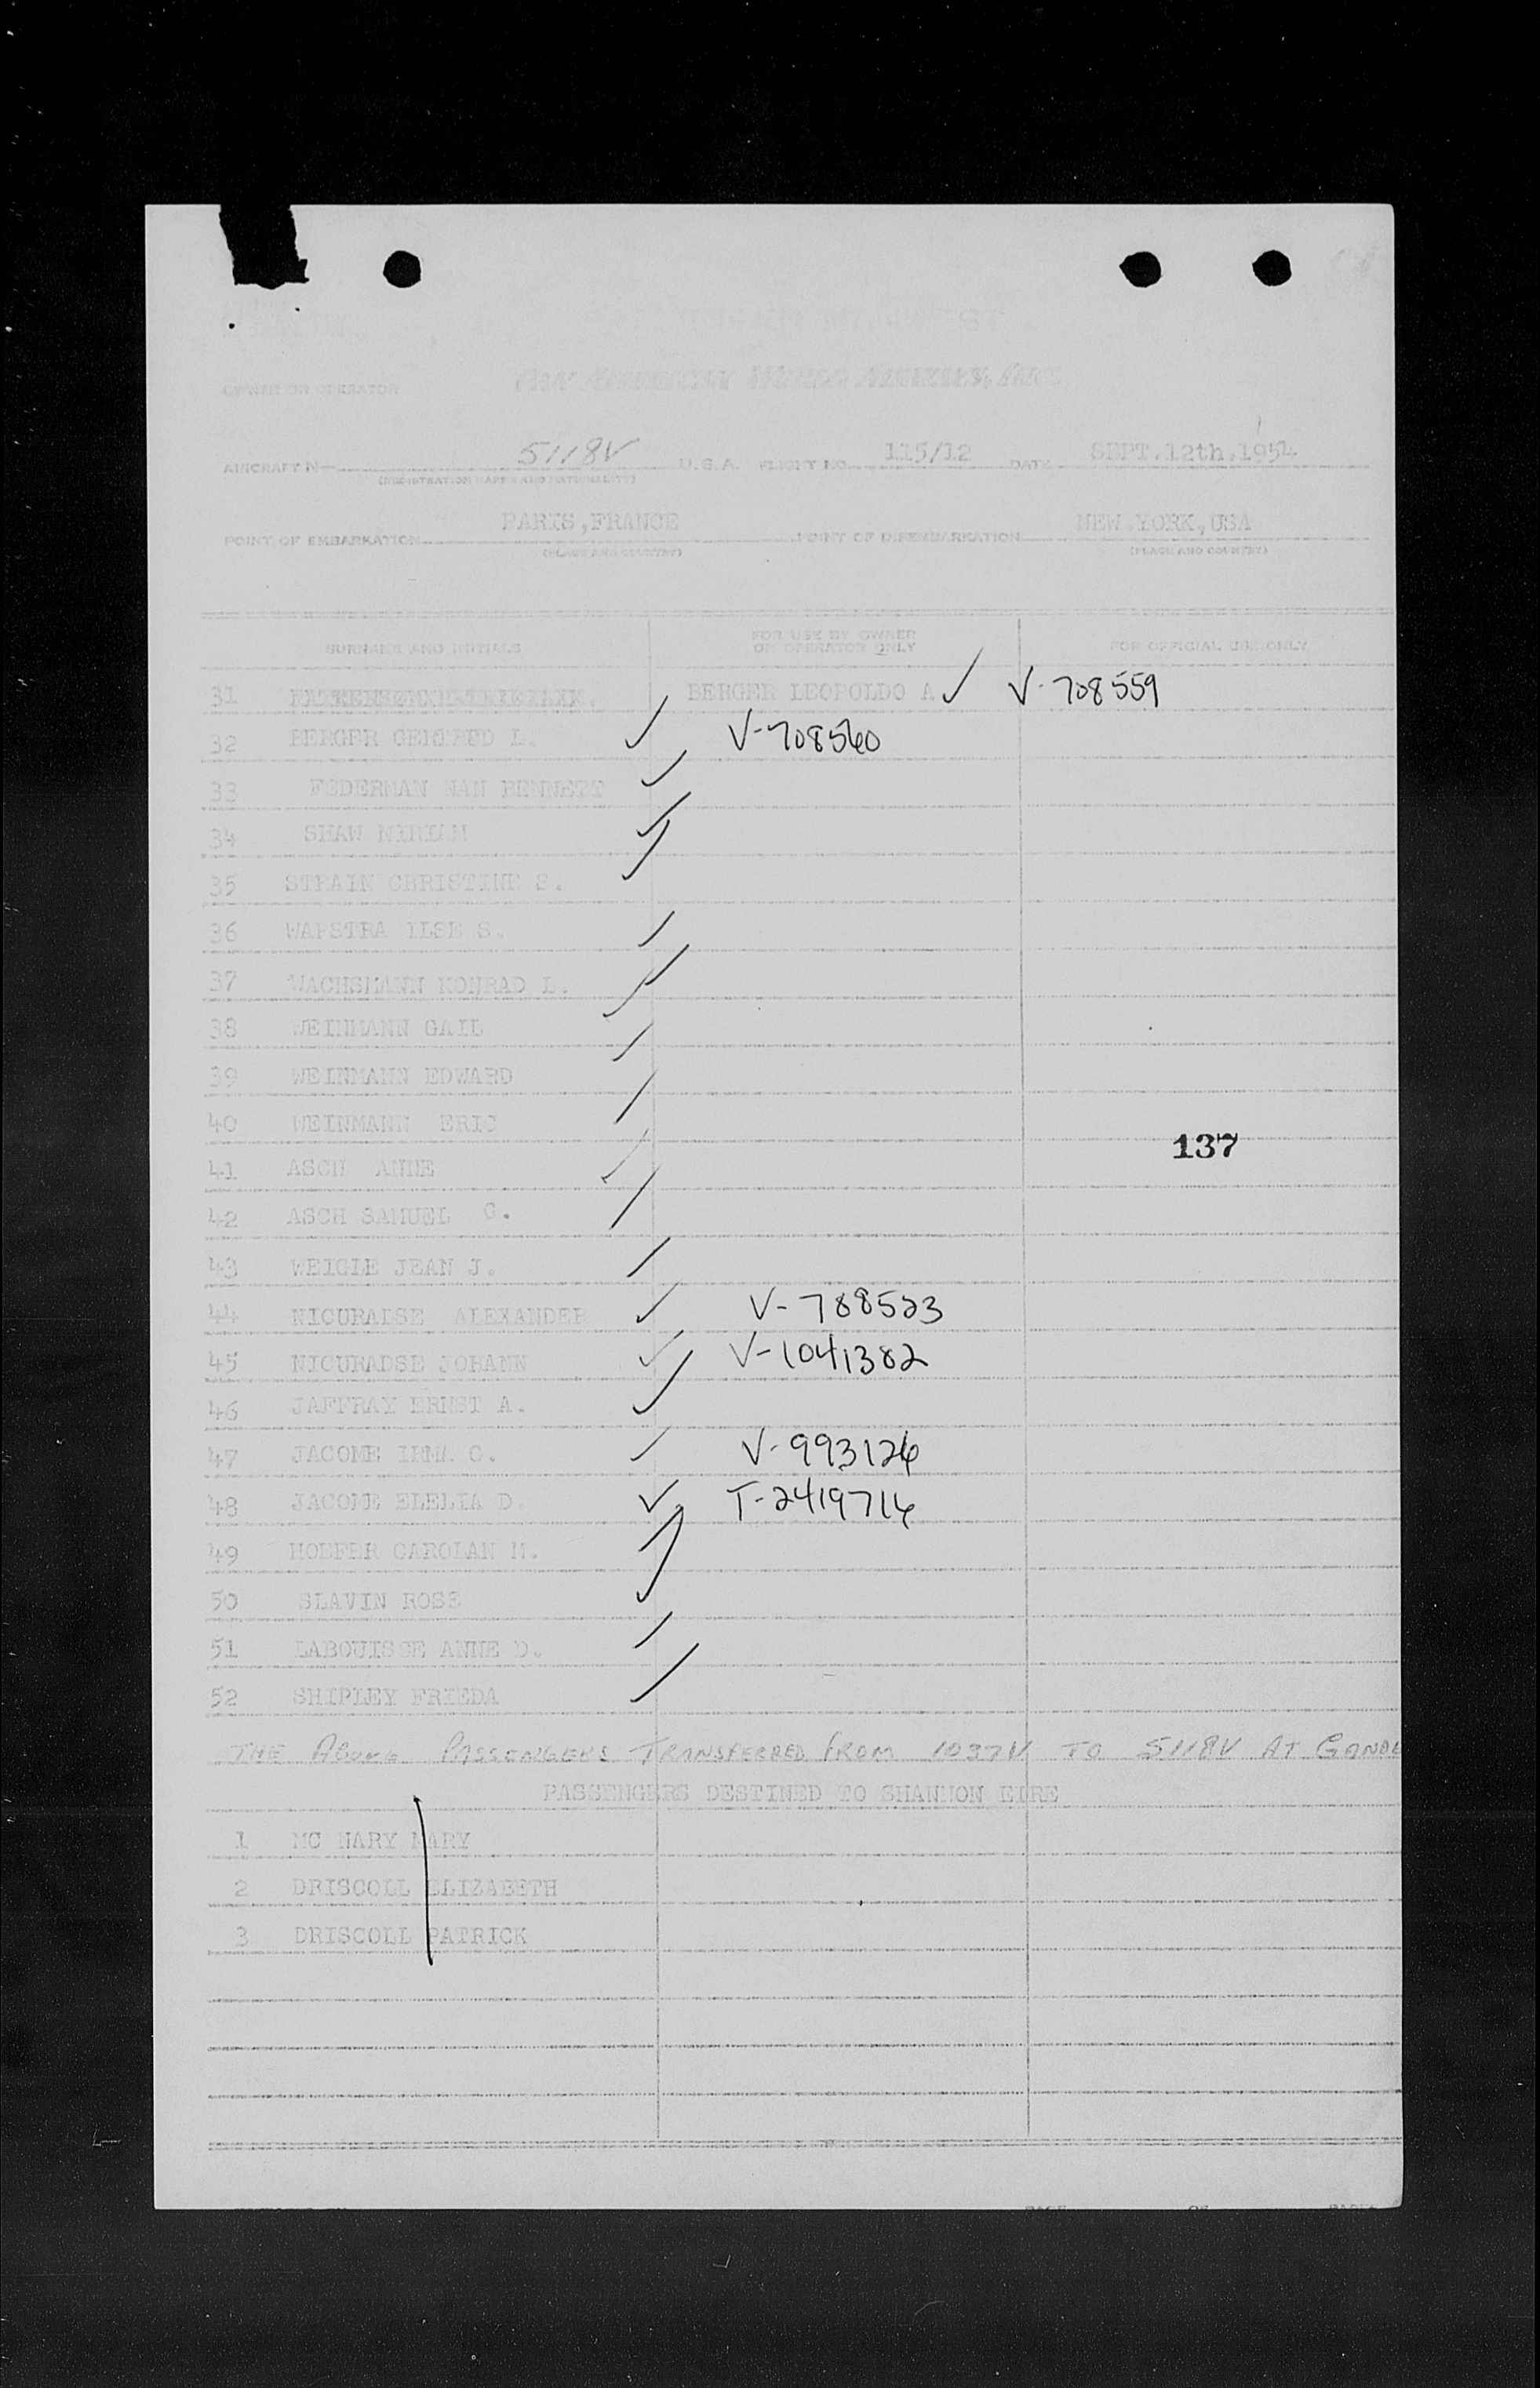 PASSENGER MANIFEST
OWNER OR OPERATOR Pan American World Airways, Inc.
AIRCRAFT N- 5118V U.S.A. FLIGHT NO. 115/12 DATE SEPT.12th.1954
(REGISTRATION MARKS AND NATIONALITY)
POINT OF EMBARKATION PARIS,FRANCE POINT OF DISEMBARKATION NEW YORK,USA
(PLACE AND COUNTRY) (PLACE AND COUNTRY)
SURNAME AND INITIALS FOR USE BY OWNER OR OPERATOR ONLY FOR OFFICIAL USE ONLY
31 BERGER LEOPOLDO A ✓ V-708559
32 BERGER GERTRUD L. ✓ V-708560
33 FEDERMAN NAN BENNETT ✓
34 SHAW MIRIAM ✓
35 STRAIN CHRISTINE S. ✓
36 WAPSTRA ILSE S.
37 WACHSMANN KONRAD L.
38 WEINMANN GAIL
39 WEINMANN EDWARD
40 WEINMANN ERIC
41 ASCH ANNE
42 ASCH SAMUEL G.
43 WEIGLE JEAN J.
44 NICURADSE ALEXANDER ✓ V-788523
45 NICURADSE JOHANN ✓ V-1041382
46 JAFFRAY ERNST A. ✓
47 JACOME IRMA C. ✓ V-993126
48 JACOME ELELIA D. ✓ T-2419716
49 CAROLAN M.
50 SLAVIN ROSE ✓
51 LABOUISSE ANNE D.
52 SHIPLEY FRIEDA
137
THE ABOVE PASSENGERS TRANSFERRED FROM 1037V TO 5118V AT GANDE
PASSENGERS DESTINED TO SHANNON EIRE
1 MC NARY MARY
2 DRISCOLL ELIZABETH
3 DRISCOLL PATRICK